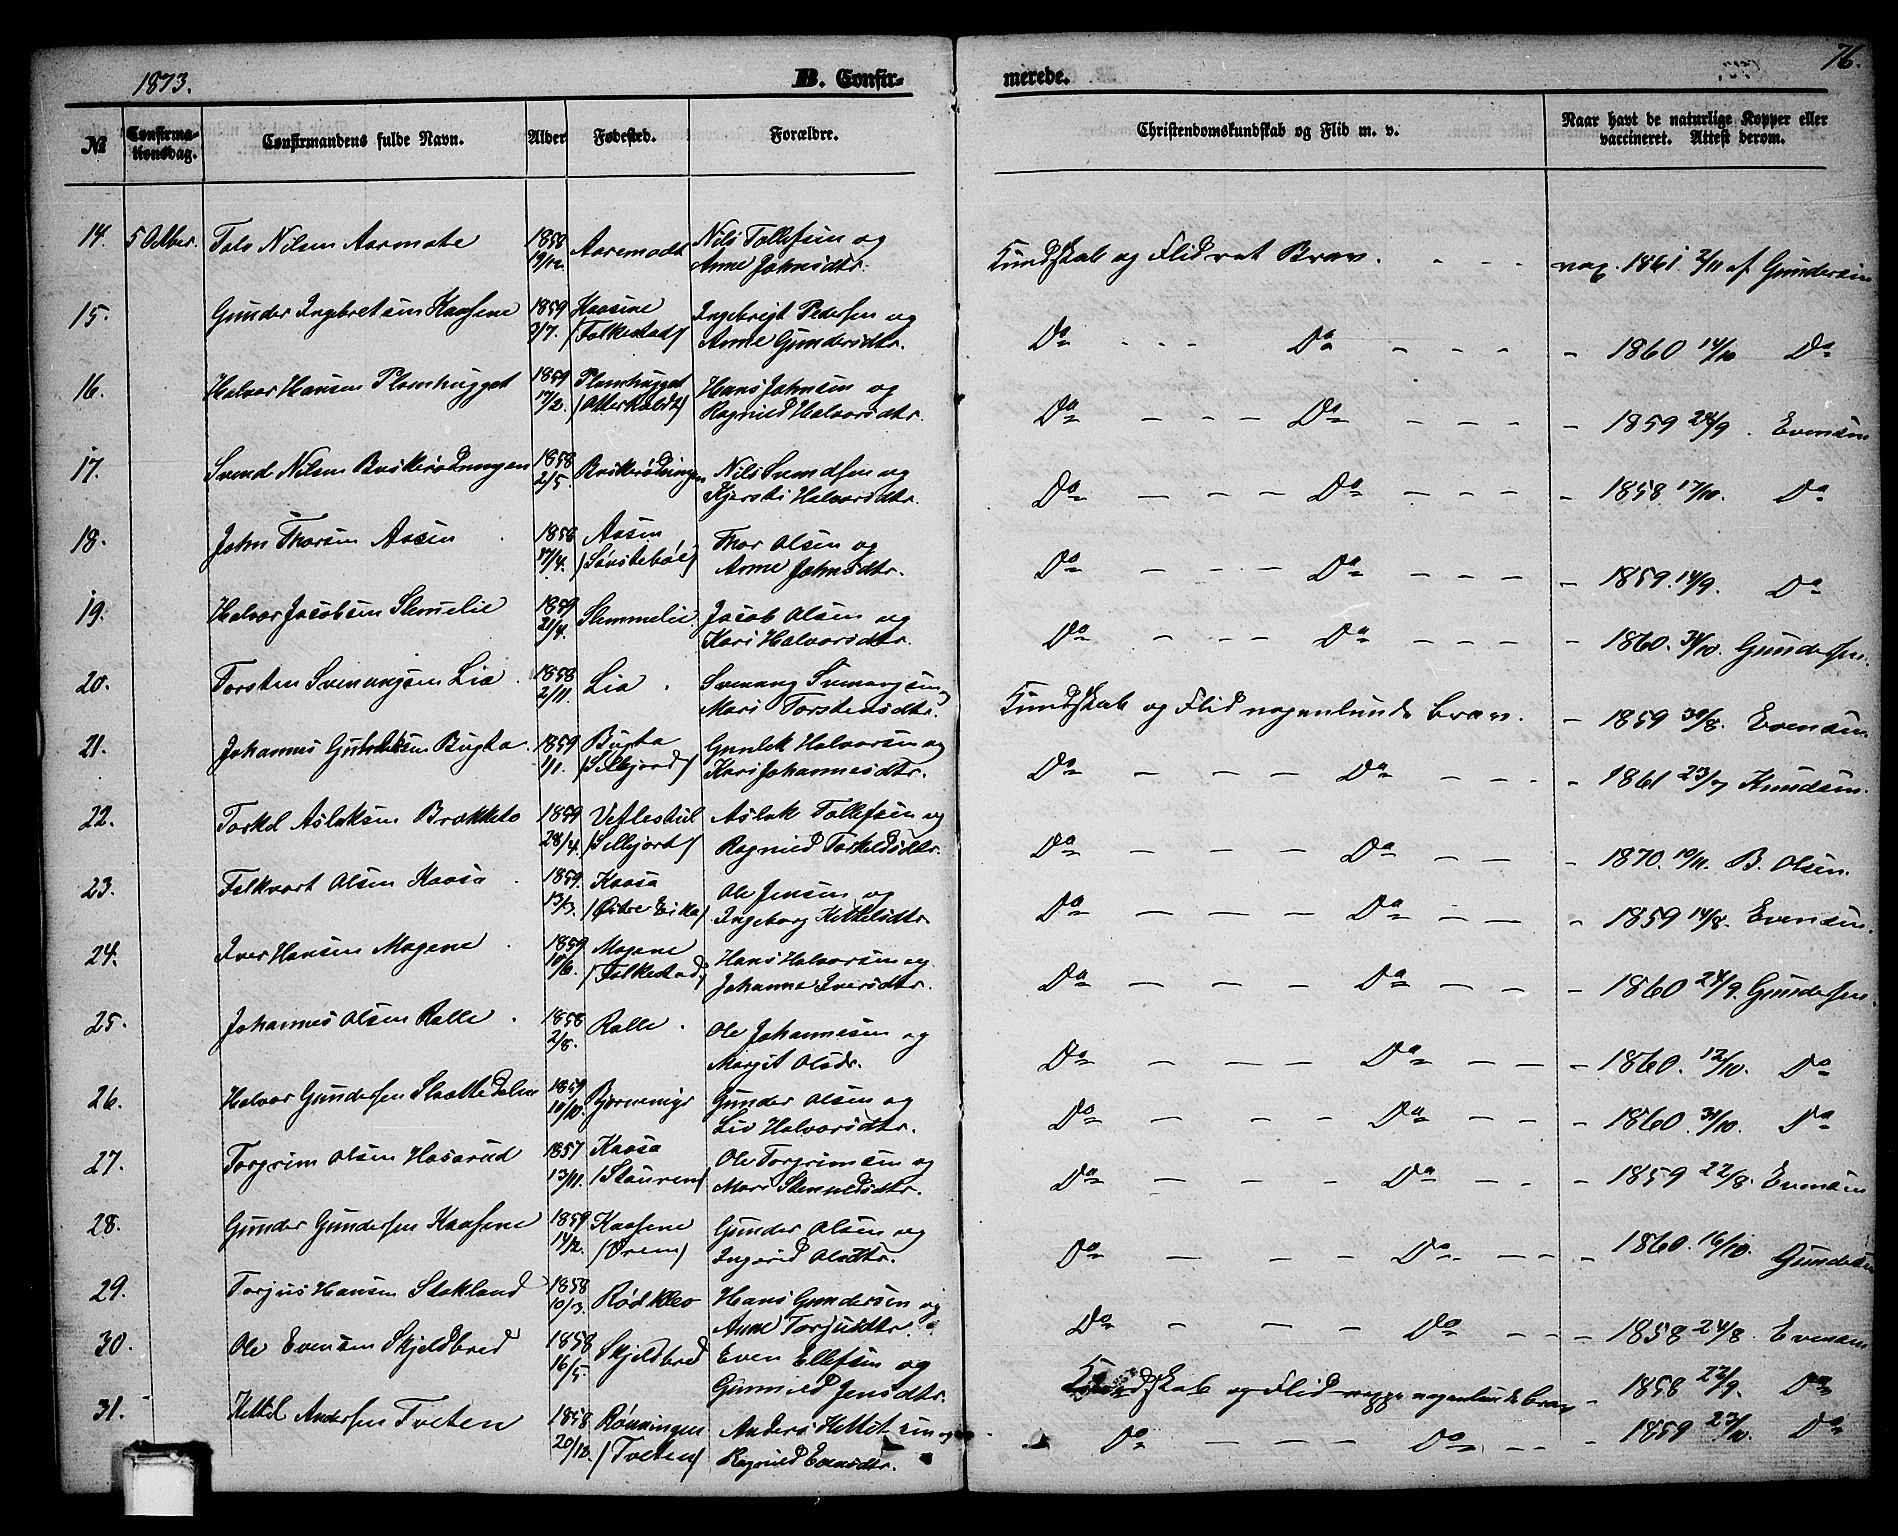 1873.
B. Confir-
merede.
76.
№
Confirma-
tionsdag.
Confirmandens fulde Navn.
Alder
Fødested.
Forældre.
Christendomskundskab og Flid m. v.
Naar havt de naturlige Kopper eller
vaccineret. Attest derom.
14. 5 Octber. Nilsen Aarmote 1858 19/12. Aaremodt Nils Tollefsen og
Anne Johnsdtr.
Kundskab og Flid Brav. - - - vax. 1861 2/11 af Gundersen
15. Gunder Ingebretsen Kaasene 1859 2/7. Kaasene
(Folkestad) Ingebrigt Pedersen og
Anne Gundersdtr.
Do - - - Do - - - - 1860 14/10 Do
16. Halvor Hansen Plomhugget 1859 17/2. Plomhugget
(Otterholdt) Hans Johnsen og
Ragnild Halvorsdtr.
Do - - - Do - - - - 1859 24/9. Evensen
17. Svend Nilsen 1858 2/5. Nils Svendsen og
Kjersti Halvorsdtr.
Do - - - Do - - - - 1858 17/10. Do
18. John Thorsen Aasen 1858 17/4. Aasen
(Sønstebøe) Thor Olsen og
Anne Johnsdtr.
Do - - - Do - - - - 1859. 14/9. Do
19. Halvor Jacobsen Slemelie 1859 21/4. Slemmelie Jacob Olsen og
Kari Halvorsdtr.
Do - - - Do - - - - 1860. 31/10. Gundersen.
20. Torsten Svenungsen Lia. 1858 2/11. Lia. Svenung Svenungsen og
Mari Torstensdtr.
Kundskab og Flid nogenlunde brav. - 1859 30/8. Evensen
21. Johannes Gunleksen Bugta. 1859 1/1. Bugta
(Sillejord) Gunlek Halvorsen og
Kari Johannesdtr.
Do - - - Do - - - - 1861 23/7 Knudsen.
22. Torkel Aslaksen Brækketo 1859 28/4. Veflestul
(Sillejord) Aslak Tollefsen og
Ragnild Torkeldsdtr.
Do - - - Do - - - 1870. 19/11. B. Olsen.
23. Folkvart Olsen Kaasa. 1859. 13/3. Kaasa
(Østre Eika) Ole Jensen og
Ingeborg Kittelsdtr.
Do - - - Do - - - 1859 14/8. Evensen.
24. Iver Hansen Mogene. 1859 10/6. Mogene
(Folkestad) Hans Halvorsen og
Johanne Iversdtr.
Do - - - Do - - - 1860 24/9. Gundersen.
25. Johannes Olsen Ralle. 1858 2/8. Ralle. Ole Johannesen og
Margit Olsdr.
Do - - - Do - - - 1860. 12/10. Do
26. Halvor Gundersen Slaattedalen 1859 10/10. Gunder Olsen og
Liv Halvorsdtr.
Do - - - Do - - - 1860. 31/10. Do
27. Torgrim Olsen Hasarud 1857 13/11. Kaasa
(Stauren) Ole Torgrimsen og
Mari
Do - - - Do - - - 1859 22/8. Evensen
28. Gunder Gundersen Kaasene 1859 14/2. Kaasene
(Øren) Gunder Olsen og
Ingerid Olsdtr.
Do - - - Do - - - 1860. 16/10. Gundersen
29. Torjus Hansen Stokland 1858 10/3. Rødkleo Hans Gundersen og
Anne Torjusdtr.
Do - - - Do - - - 1858 24/8. Evensen
30. Ole Evensen Skjeldbred 1858 16/5. Skjeldbred Even Ellefsen og
Gunnild Jensdtr.
Kundskab og Flid neppe nogenlunde brav - 1858 22/9. Do
31. Kittil Andersen Tveten 1858 20/12. Rønningen
(Tveten) Anders Kittilsen og
Ragnild Evensdtr.
Do - - - Do - - - 1859 23/10. Do